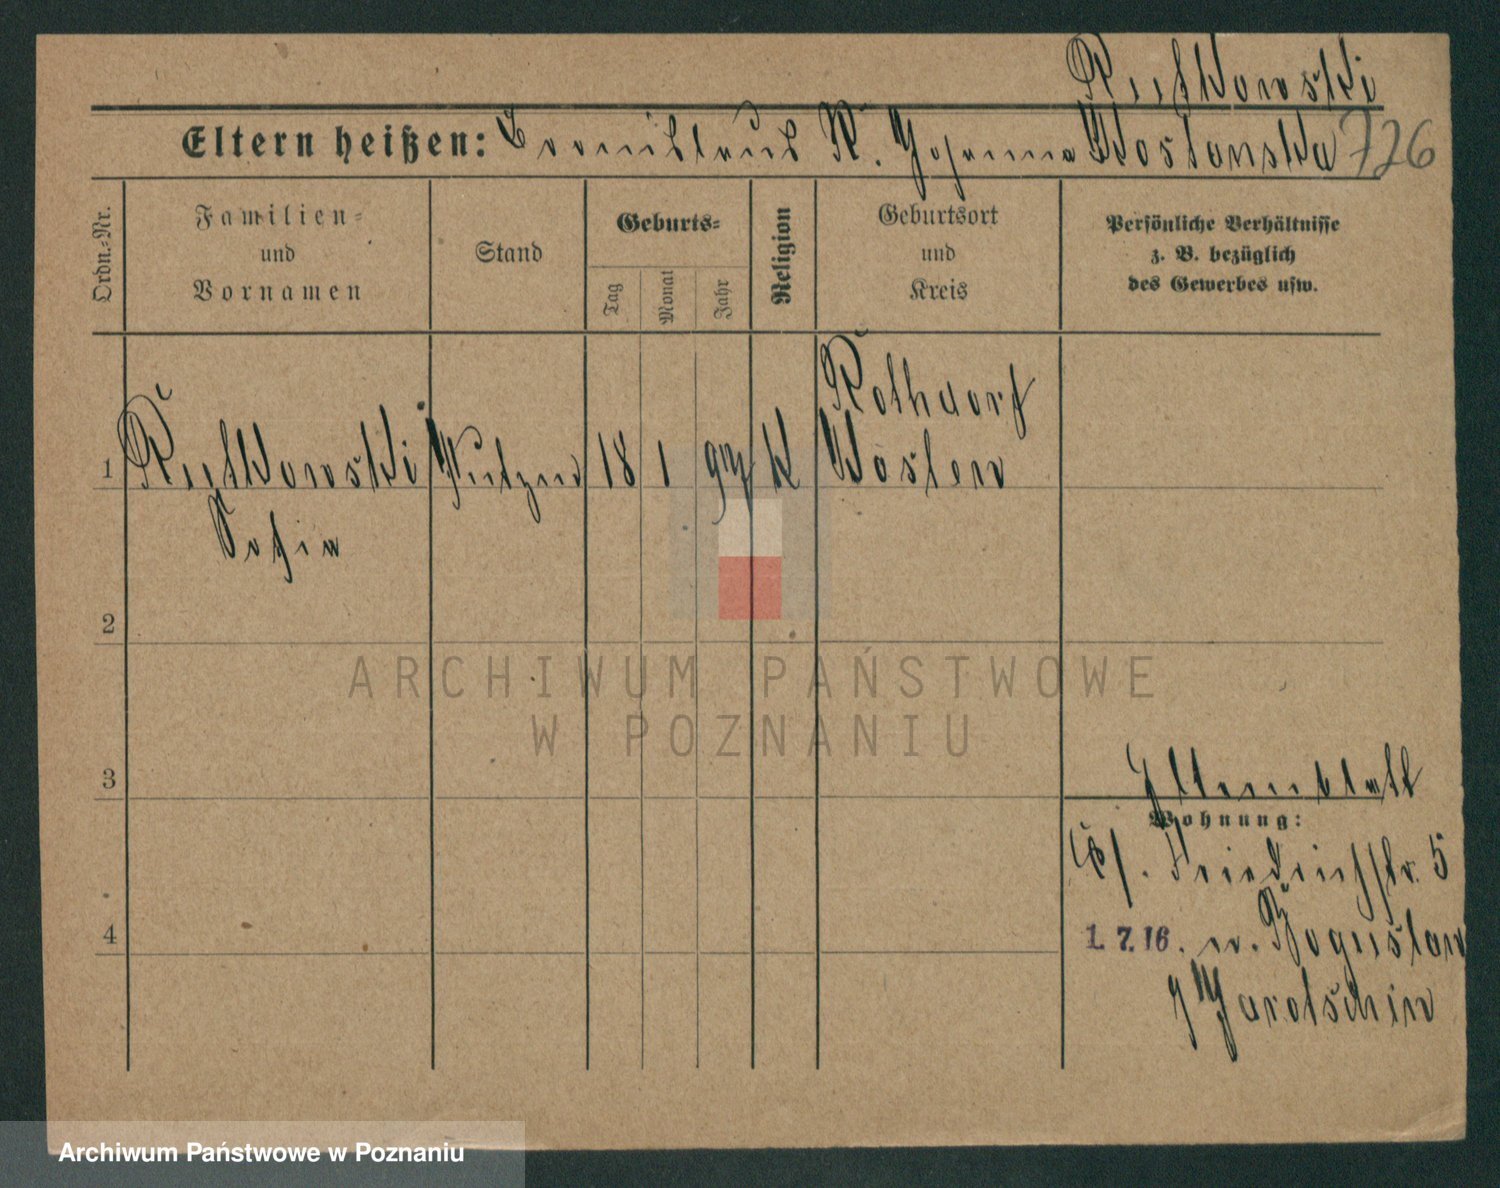 Rutkowski
Eltern heißen: Bronislaus R. Johanna Woslonska 726
Ordn.=Nr.
Familien=
und
Vornamen
Stand
Geburts=
Tag
Monat
Jahr
Religion
Geburtsort
und
Kreis
Persönliche Verhältnisse
z. B. bezüglich
des Gewerbes usw.
Rothdorf
1 Rutkowski 18 1 K
Sofia
2
3
Wohnung:
Friedrichstr. 5
4
1. 7. 16. n. Boguslaw
Jarotschin
ARCHIWUM PAŃSTWOWE
W POZNANIU
Archiwum Państwowe w Poznaniu